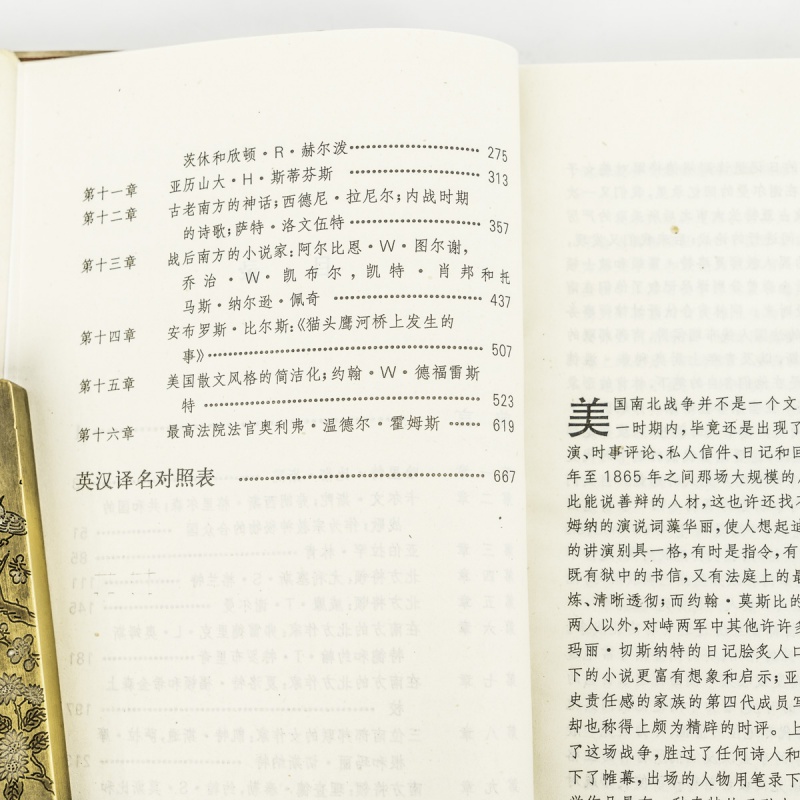 茨休和欣顿·R·赫尔泼………………275
第十一章 亚历山大·H·斯蒂芬斯………………313
第十二章 古老南方的神话;西德尼·拉尼尔;内战时期
的诗歌;萨特·洛文伍特………………357
第十三章 战后南方的小说家:阿尔比恩·W·图尔谢,
乔治·W·凯布尔,凯特·肖邦和托
马斯·纳尔逊·佩奇………………437
第十四章 安布罗斯·比尔斯:《猫头鹰河桥上发生的
事》………………507
第十五章 美国散文风格的简洁化;约翰·W·德福雷斯
特………………523
第十六章 最高法院法官奥利弗·温德尔·霍姆斯……619
英汉译名对照表………………667
美国南北战争并不是一个文
一时期内,毕竟还是出现了
演、时事评论、私人信件、日记和回
年至1865年之间那场大规模的
此能说善辩的人材,这也许还找不
姆纳的演说词藻华丽,使人想起
的讲演别具一格,有时是指令,有
既有狱中的书信,又有法庭上的最
炼、清晰透彻;而约翰·莫斯比的
两人以外,对峙两军中其他许许多
玛丽·切斯纳特的日记脍炙人口
下的小说更富有想象和启示;亚
史责任感的家族的第四代成员写
却也称得上颇为精辟的时评。上
了这场战争,胜过了任何诗人和
下了帷幕,出场的人物用笔录下